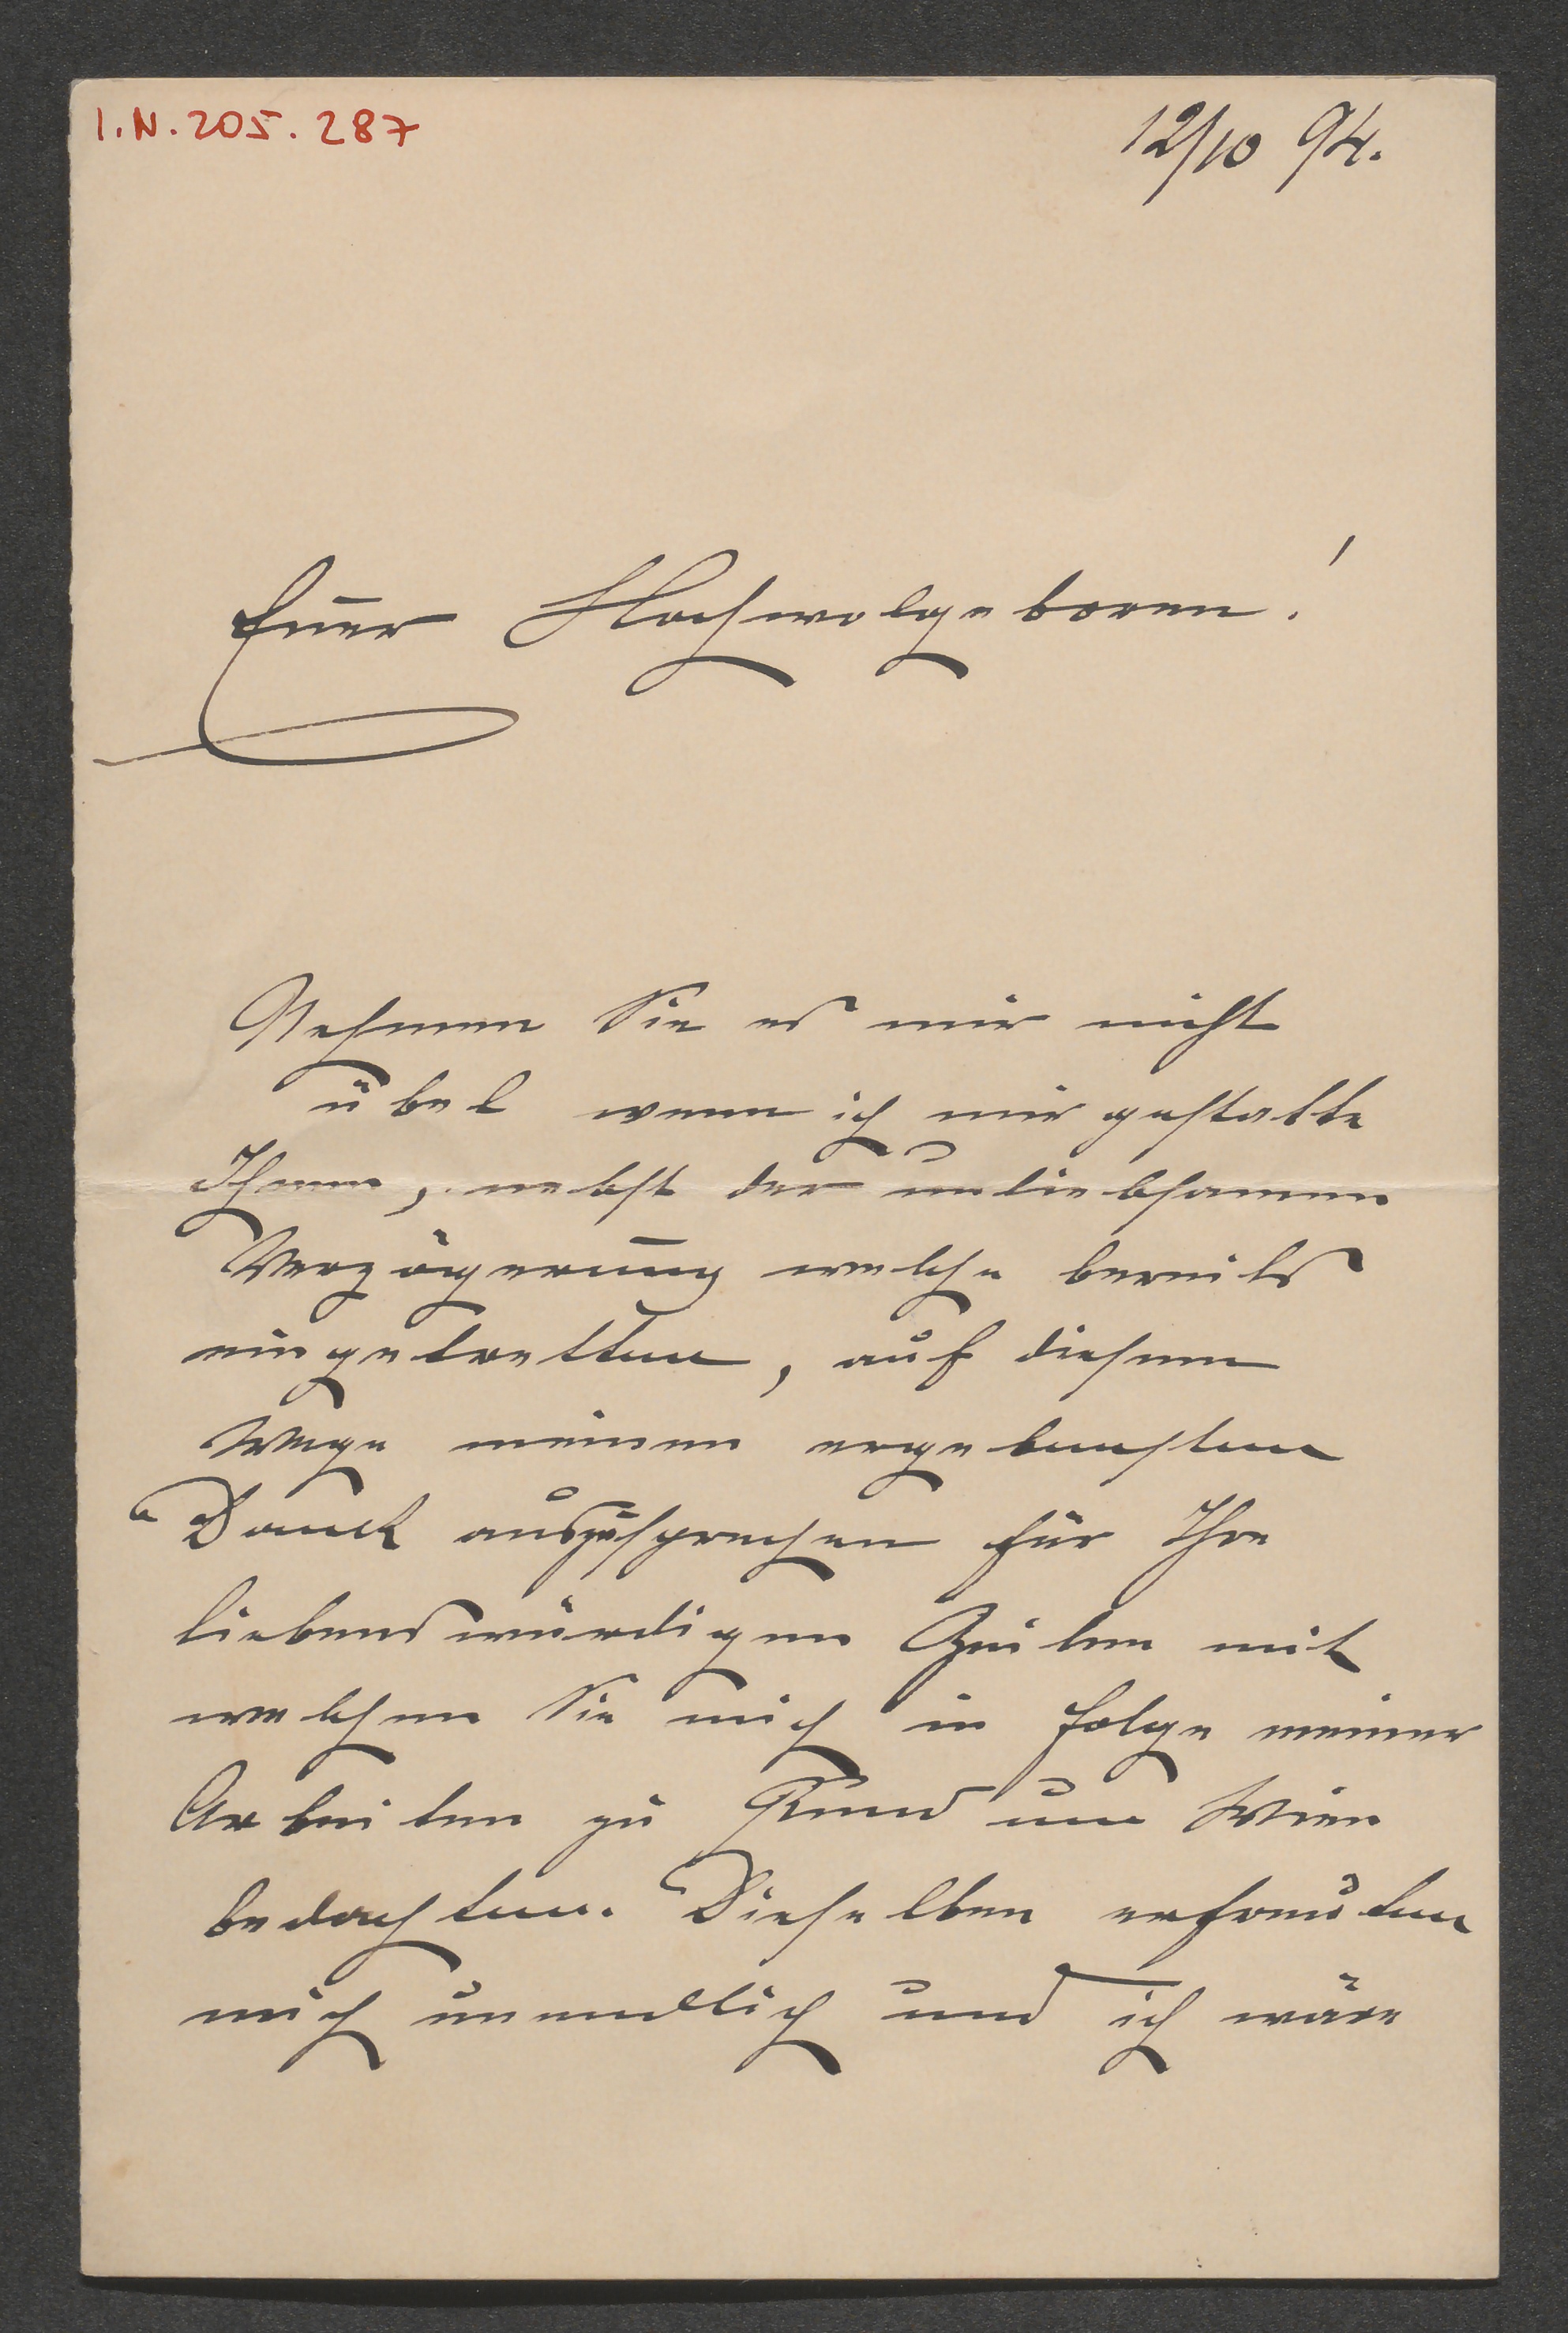 I.N. 205.287
12/10 94.
Euer Hochwolgeboren!
Nehmen Sie es mir nicht
übel wenn ich mir gestatte
Ihnen, nebst der unliebsamen
Verzögerung welche bereits
eingetretten, auf diesem
Wege meinen ergebensten
Danck auszusprechen für Ihre
liebenswürdigen Zeilen mit
welchen Sie mich in folge meiner
Arbeiten zu Rund um Wien
bedachten. Dieselben erfreuten
mich unendlich und ich wäre